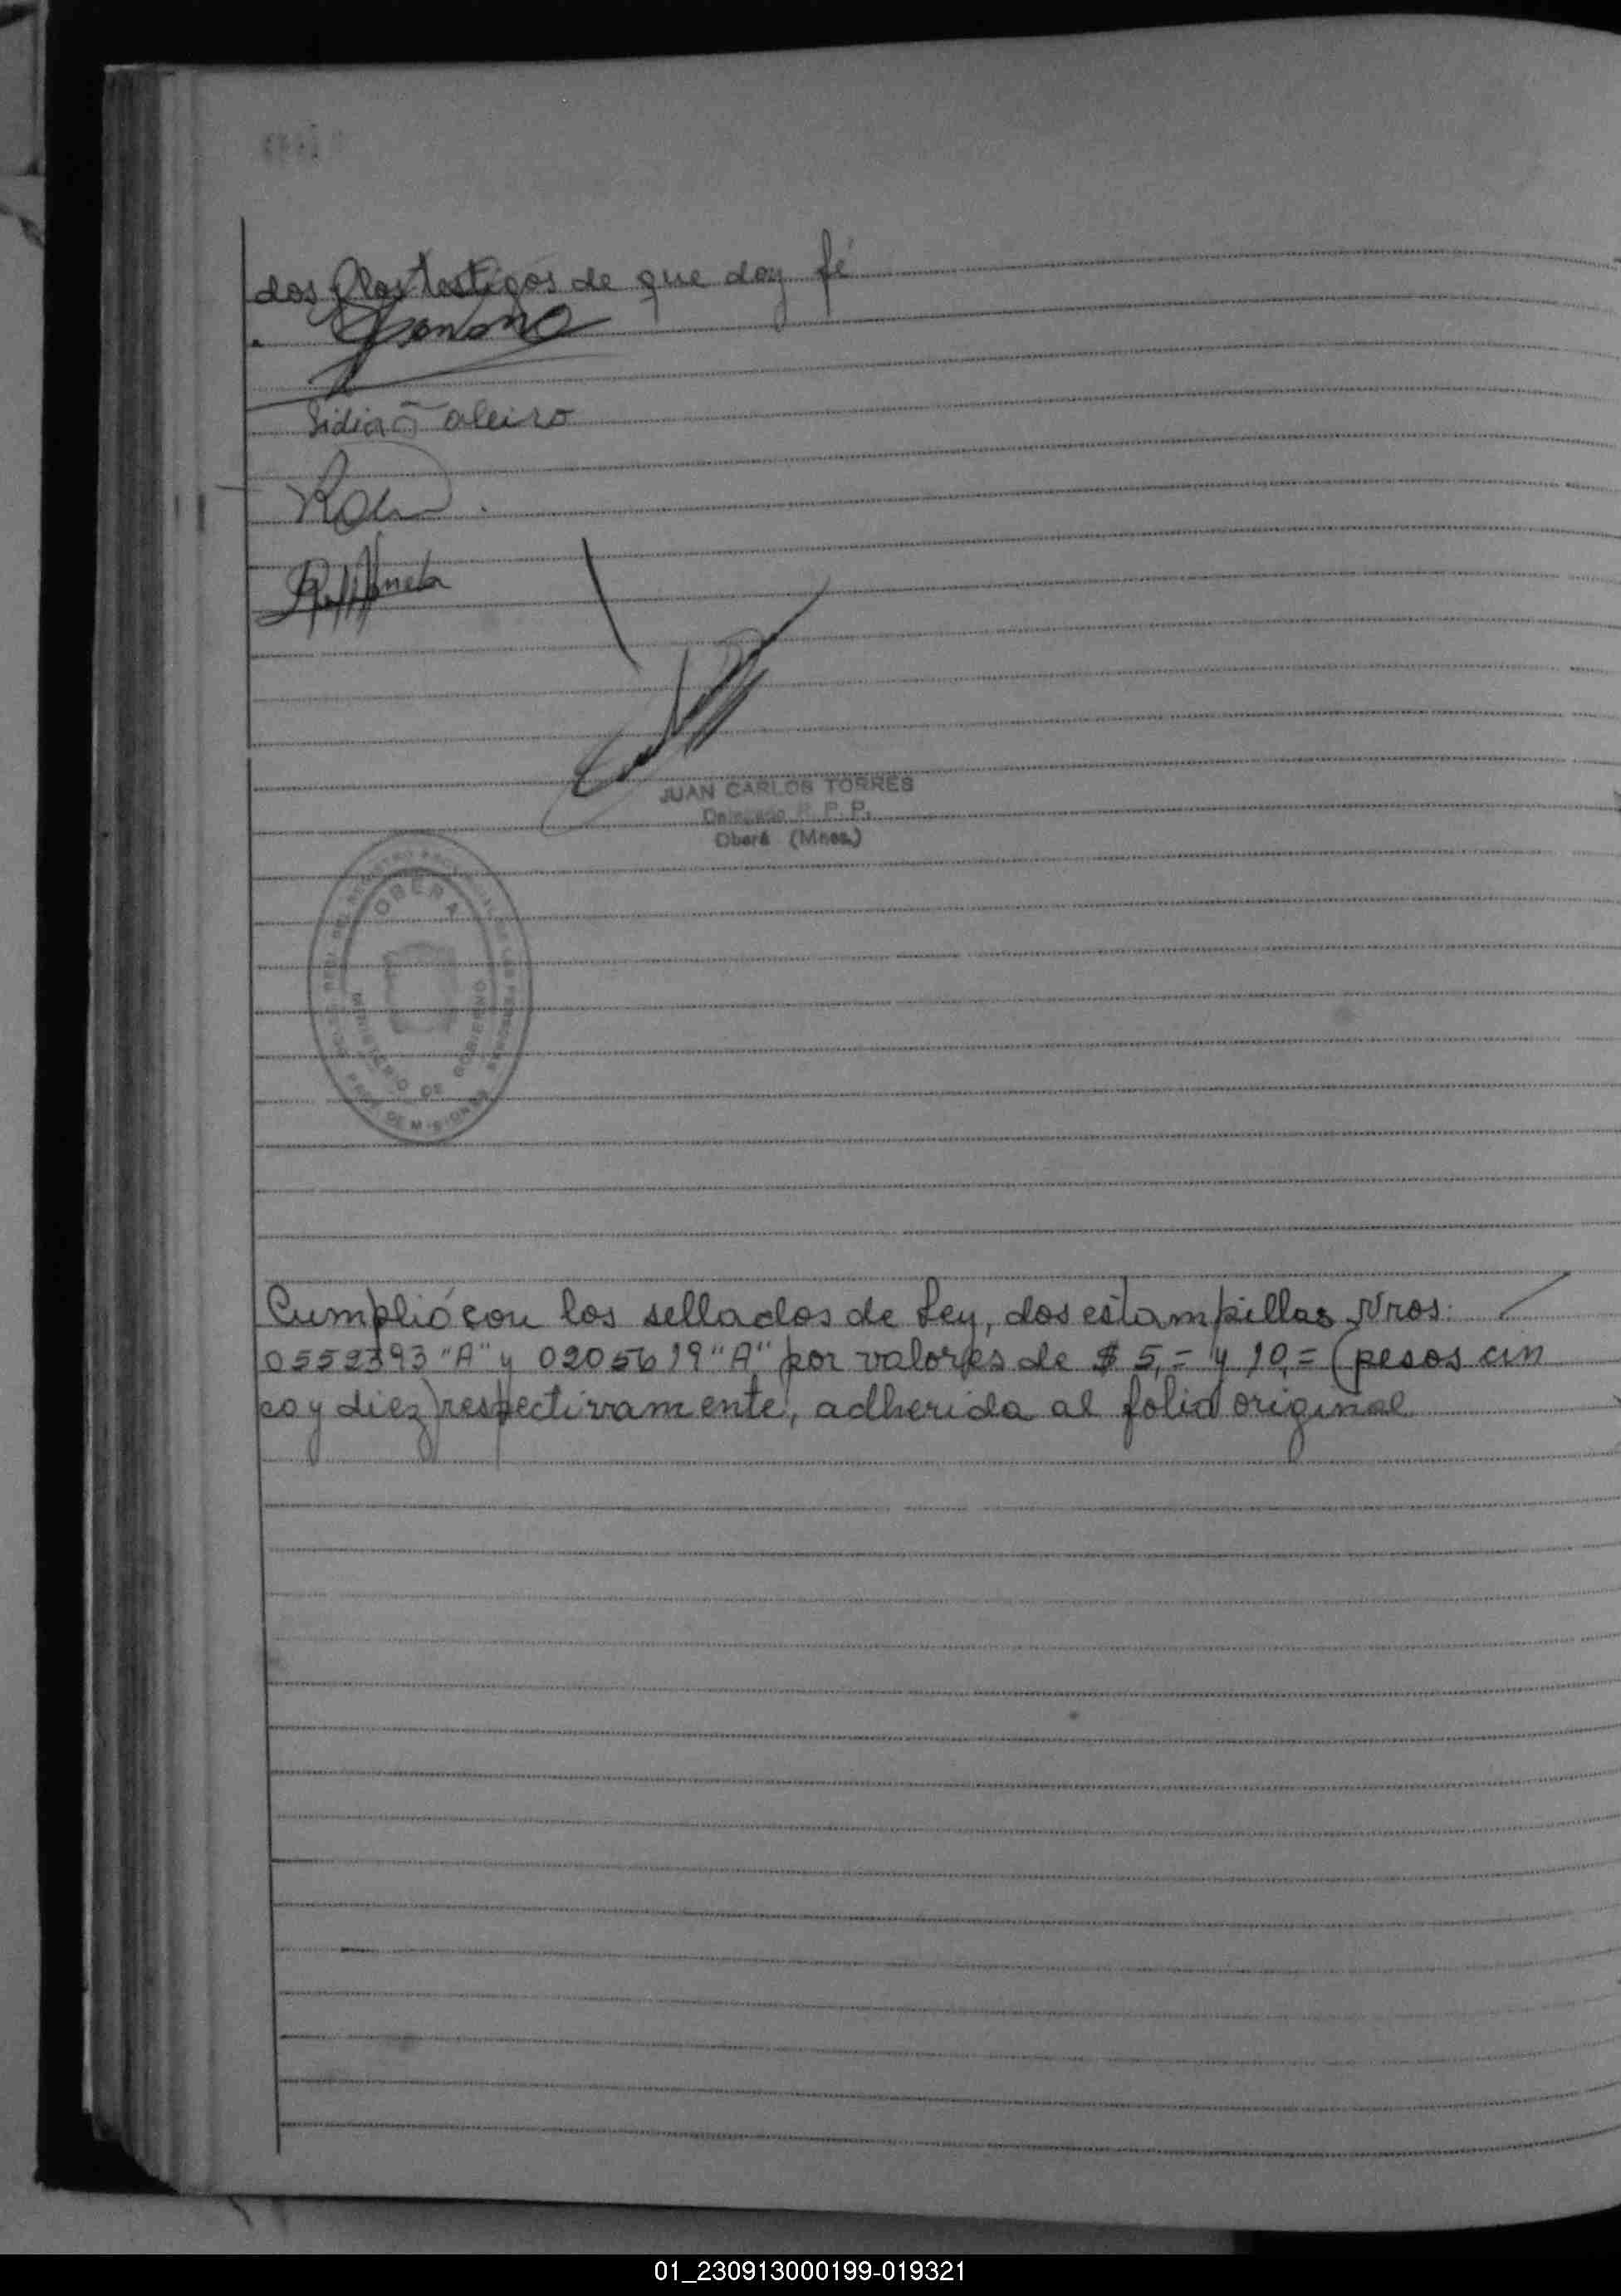 dos y los testigos de que doy fé
JUAN CARLOS TORRES
Delegado R. P. P.
Oberá (Mnes.)
OBERA
MINISTERIO DE GOBIERNO
PROV. DE MISIONES
Cumplió con los sellados de Ley, dos estampillas Nros:
0552393 "A" y 0205619 "A" por valores de $ 5,= y 10,= (pesos cin
co y diez) respectivamente, adherida al folio original
01_230913000199-019321